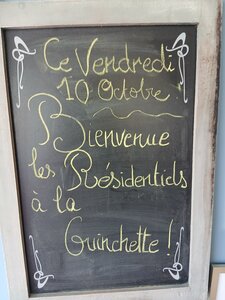 Ce Vendredi
10 Octobre
Bienvenue
les Résidentiels
à la
Guinchette !